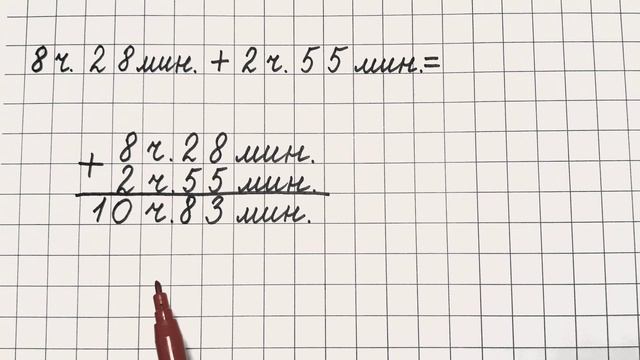 8 ч. 28 мин. + 2 ч. 55 мин.=
+ 8 ч. 28 мин.
2 ч. 55 мин.
10 ч. 83 мин.